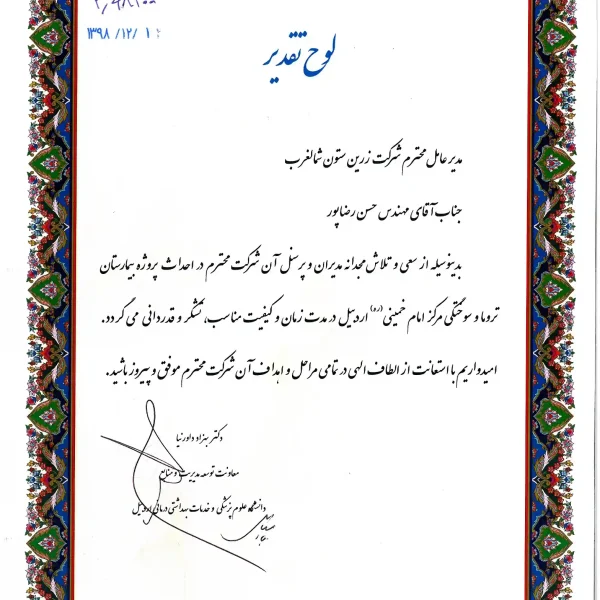 ۱۳۹۸/۱۲/۱
لوح تقدیر
مدیر عامل محترم شرکت زرین ستون شمالغرب
جناب آقای مهندس حسن رضاپور
بدینوسیله از سعی و تلاش مجدانه مدیران و پرسنل آن شرکت محترم در احداث پروژه بیمارستان
تروما و سوختگی مرکز امام خمینی (ره) اردبیل در مدت زمان و کیفیت مناسب، تشکر و قدردانی می گردد.
امیدواریم با استعانت از الطاف الهی در تمامی مراحل و اهداف آن شرکت محترم موفق و پیروز باشید.
دکتر بهزاد داورنیا
معاونت توسعه مدیریت و منابع
دانشگاه علوم پزشکی و خدمات بهداشتی درمانی اردبیل